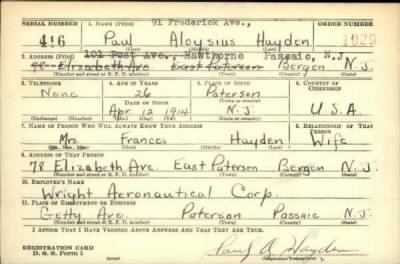 91 Frederick Ave.,
SERIAL NUMBER 1. NAME (Print) ORDER NUMBER
416 Paul Aloysius Hayden 1929
(First) (Middle) (Last)
101 Post Ave., Hawthorne Passaic, N.J.
2. ADDRESS (Print)
78 Elizabeth Ave East Paterson Bergen N.J.
(Number and street or R. F. D. number) (Town) (County) (State)
3. TELEPHONE 4. AGE IN YEARS 5. PLACE OF BIRTH 6. COUNTRY OF CITIZENSHIP
None 26 Paterson
(Town or county)
DATE OF BIRTH
Apr 12 1914 N.J. U.S.A
(Exchange) (Number) (Mo.) (Day) (Yr.) (State or country)
7. NAME OF PERSON WHO WILL ALWAYS KNOW YOUR ADDRESS 8. RELATIONSHIP OF THAT PERSON
Mrs. Frances Hayden Wife
(Mr., Mrs., Miss) (First) (Middle) (Last)
9. ADDRESS OF THAT PERSON
78 Elizabeth Ave East Paterson Bergen N.J.
(Number and street or R. F. D. number) (Town) (County) (State)
10. EMPLOYER'S NAME
Wright Aeronautical Corp.
11. PLACE OF EMPLOYMENT OR BUSINESS
Getty Ave. Paterson Passaic N.J.
(Number and street or R. F. D. number) (Town) (County) (State)
I AFFIRM THAT I HAVE VERIFIED ABOVE ANSWERS AND THAT THEY ARE TRUE.
REGISTRATION CARD
D. S. S. Form 1 Paul A. Hayden